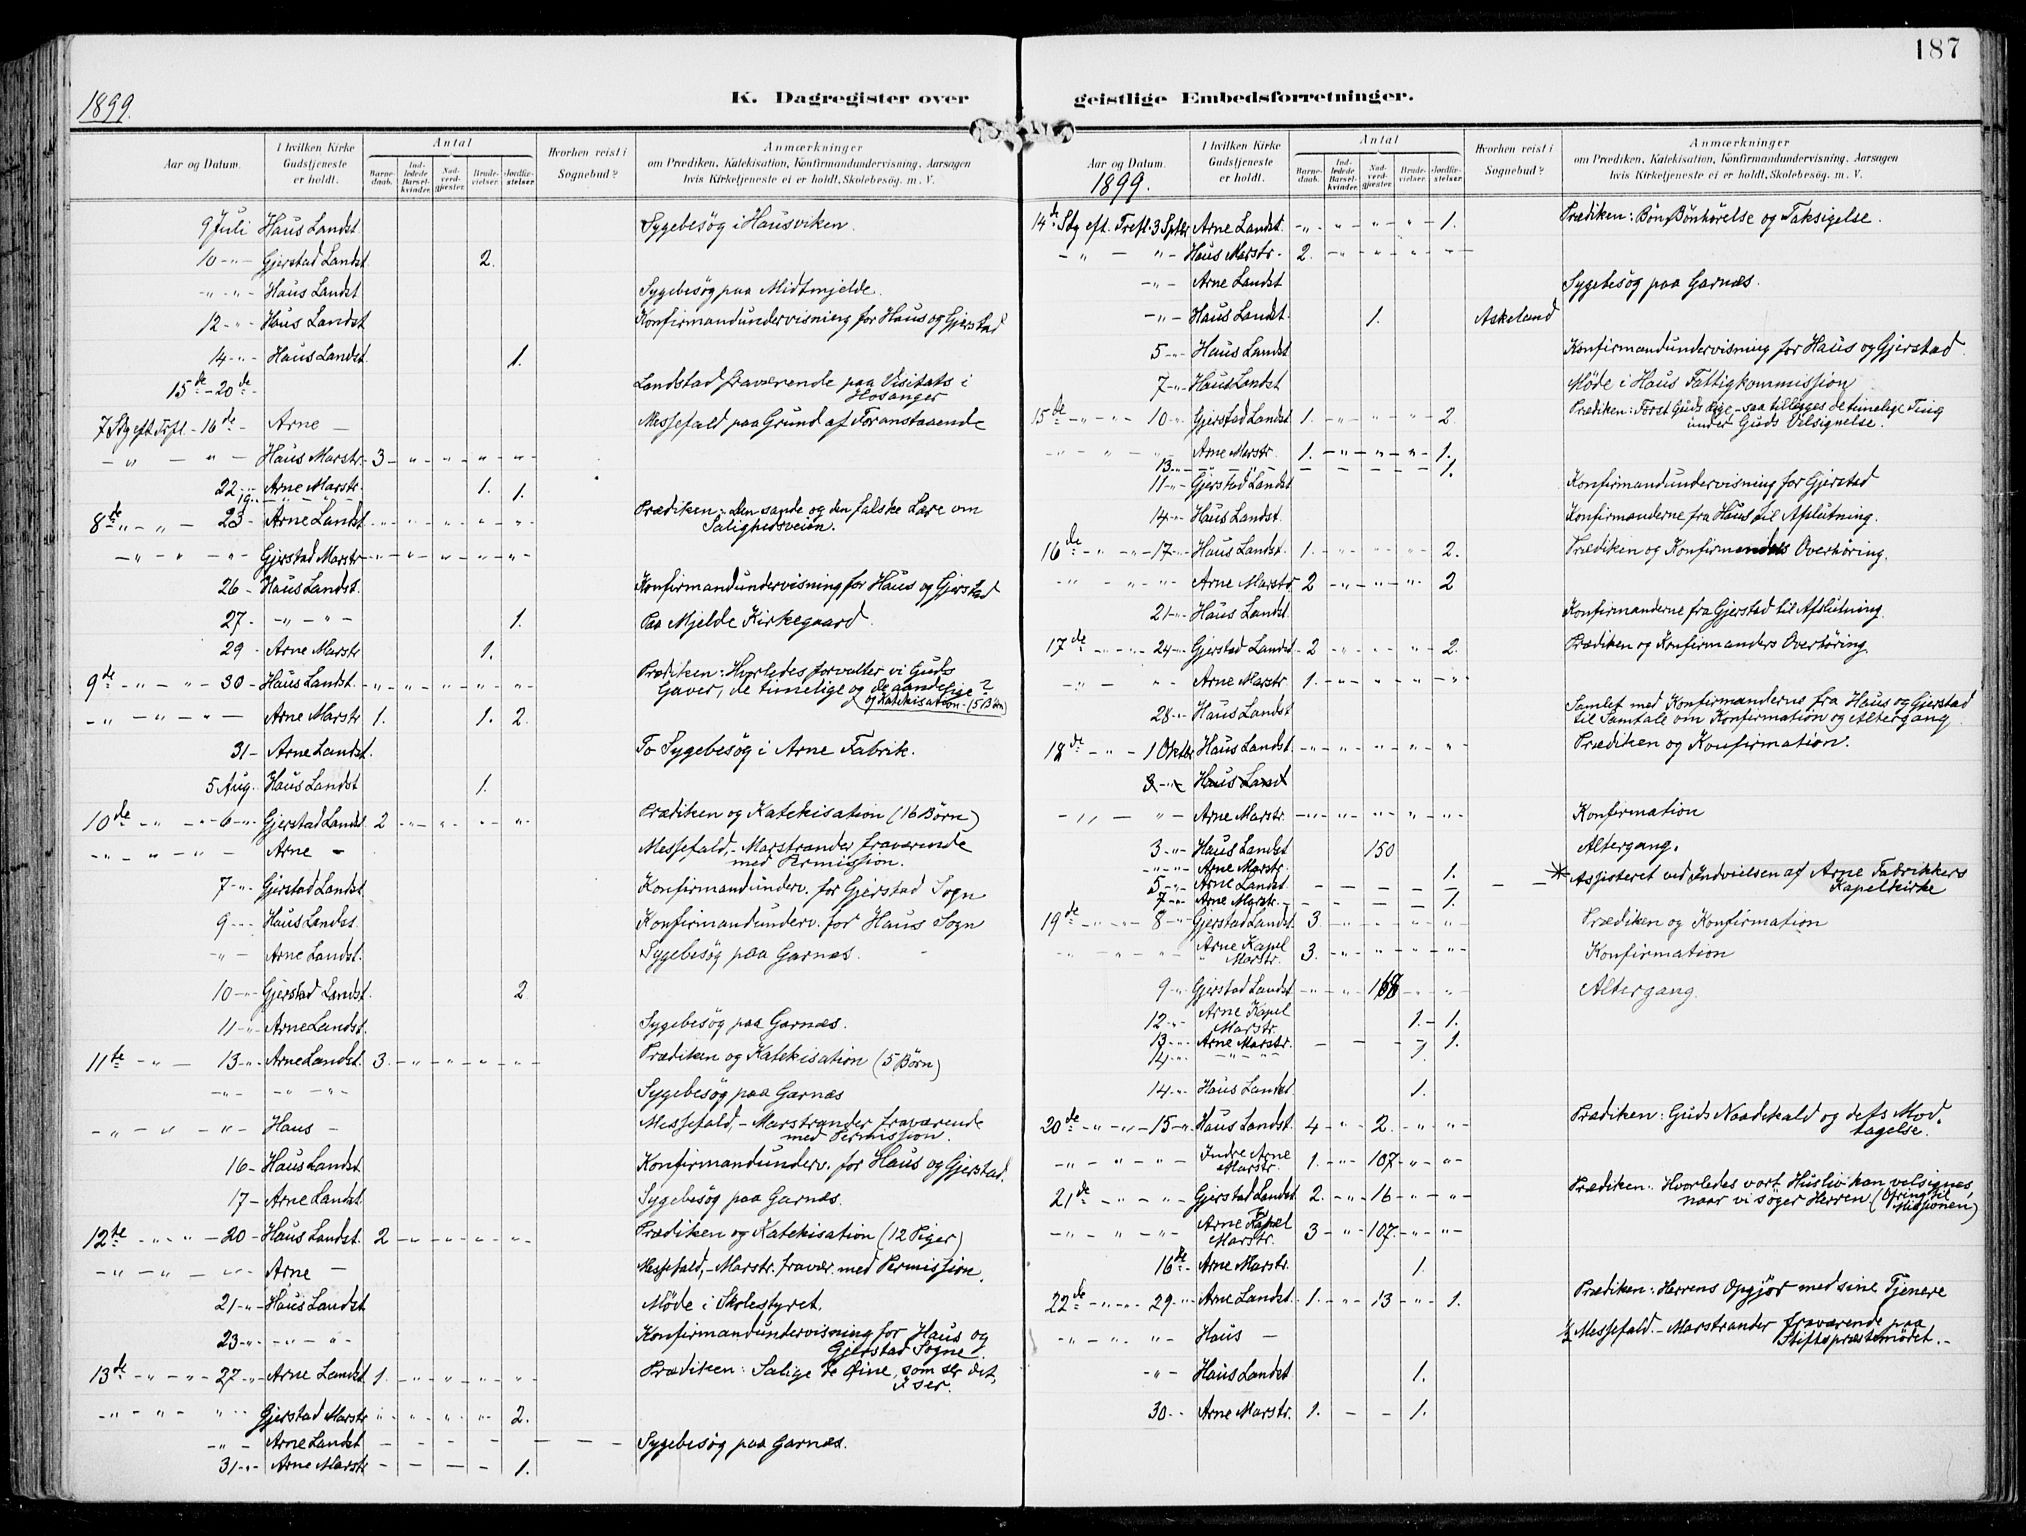 187
1899.
K. Dagregister over
geistlige Embedsforretninger.
Aar og Datum.
I hvilken Kirke Gudstjeneste er holdt.
Antal
Barnedaab.
Indledede Barselkvinder.
Nadverdgjester.
Brudevielser.
Jordfæstelser.
Hvorhen reist i Sognebud?
Anmærkninger
om Prædiken, Katekisation, Konfirmandundervisning, Aarsagen
hvis Kirketjeneste ei er holdt, Skolebesøg. m. V.
9 Juli Haus Landst. Sygebesøg i Hausviken.
10 -"- Gjerstad Landst. 2.
-"- -"- Haus Landst Sygebesøg paa Midtmjelde.
12 -"- Haus Landst Konfirmandundervisning for Haus og Gjerstad
14 -"- Haus Landst. 1.
15de - 20de - Landstad fraværende paa Visitats i
Hosanger
7 Stg eft. Trfl. - 16de - Arne - Messefald paa Grund af Foranstaaende
-"- -"- Haus Marstr. 3 -"- -"- -"- -"-
22 -"- Arne Marstr. 1.
19 -"- 1.
8de -"- -"- 23 - Arne Landst. -"- -"- -"- -"- -"- Prædiken: Den sande og den falske Lære om
Salighedsveien.
-"- -"- -"- Gjerstad Marstr -"- -"- -"- -"- -"-
26 - Haus Landst. Konfirmandundervisning for Haus og Gjerstad
27 - -"- -"- 1. Paa Mjelde Kirkegaard.
29 - Arne Marstr 1.
9de -"- -"- 30 - Haus Landst. -"- -"- -"- -"- -"- Prædiken: Hvorledes forvalter vi Guds
Gaver, de timelige og de aandelige?
og Katekisation - (5 Børn)
-"- -"- -"- Arne Marstr 1. 1. 2.
31 - Arne Landst. To Sygebesøg i Arne Fabrik.
5 Aug. Haus Landst 1.
10de -"- -"- 6 -"- Gjerstad Landst. 2 -"- -"- -"- -"- Prædiken og Katekisation (16 Børn)
-"- -"- -"- Arne - Messefald, - Marstrander fraværende
med Permission.
7 -"- Gjerstad Landst. Konfirmandunderv. for Gjerstad Sogn
9 -"- Haus Landst. Konfirmandunderv. for Haus Sogn
-"- Arne Landst. Sygebesøg paa Garnæs.
10 -"- Gjerstad Landst. 2
11 -"- Arne Landst. Sygebesøg paa Garnæs.
11te -"- - 13 -"- Arne Landst. 3 -"- -"- -"- -"- Prædiken og Katekisation (5 Børn)
-"- -"- -"- Sygebesøg paa Garnæs
-"- -"- -"- Haus - Messefald, - Marstrander fraværende
med Permission.
16 - Haus Landst. Konfirmandunderv. for Haus og Gjerstad.
17 - Arne Landst. Sygebesøg paa Garnæs.
12te -"- -"- 20 - Haus Landst. 2 -"- -"- -"- -"- Prædiken og Katekisation (12 Piger)
-"- -"- -"- Arne - Messefald, - Marstr. fravær. med Permission.
21 -"- Haus Landst Møde i Skolestyret.
23 -"- -"- -"- Konfirmandundervisning for Haus og
Gjerstad Sogne.
13de -"- -"- 27 -"- Arne Landst 1. -"- -"- -"- -"- Prædiken: Salige de Øine, som ser det,
I ser.
-"- -"- -"- Gjerstad Marstr -"- -"- -"- -"- 2.
-"- Arne Landst - - - - - - - Sygebesøg paa Garnæs.
31 -"- Arne Marstr - - - - 1.
Aar og Datum.
1899.
I hvilken Kirke Gudstjeneste er holdt.
Antal
Barnedaab.
Indledede Barselkvinder.
Nadverdgjester.
Brudevielser.
Jordfæstelser.
Hvorhen reist i Sognebud?
Anmærkninger
om Prædiken, Katekisation, Konfirmandundervisning, Aarsagen
hvis Kirketjeneste ei er holdt, Skolebesøg. m. V.
14de Stg eft. Trefl. 3 Sptbr Arne Landst. -"- -"- -"- -"- 1. Prædiken: Bøn, Bønhørelse og Taksigelse.
-"- - "- Haus Marstr. 2. -"- -"- -"- -"-
-"- Arne Landst Sygebesøg paa Garnæs.
-"- Haus Landst. 1. Askeland
5 -"- Haus Landst Konfirmandundervisning for Haus og Gjerstad
7 -"- Haus Landst Møde i Haus Fattigkommission
15de -"- -"- 10 -"- Gjerstad Landst. 1. -"- -"- -"- 2. Prædiken: Først Guds Rige, - saa tillægges de timelige Ting
under Guds Velsignelse.
-"- -"- -"- Arne Marstr. 1. -"- -"- -"- 1.
13 -"- 1.
11 -"- Gjerstad Landst Konfirmandundervisning for Gjerstad
14 -"- Haus Landst. Konfirmanderne fra Haus til Afslutning.
16de -"- -"- 17 -"- Haus Landst. 1. -"- -"- -"- 2. Prædiken og Konfirmanders Overhøring.
-"- -"- -"- Arne Marstr. 2 -"- -"- -"- 2
21 -"- Haus Landst. Konfirmanderne fra Gjerstad til Afslutning.
17de -"- -"- 24 -"- Gjerstad Landst. 2 -"- -"- -"- 2. Prædiken og Konfirmanders Overhøring
-"- -"- Arne Marstr 1. -"- -"- -"- -"-
28 -"- Haus Landst Samlet med Konfirmanderne fra Haus og Gjerstad
til Samtale om Konfirmation og Altergang
18de -"- -"- 1 Oktbr Haus Landst. -"- -"- -"- -"- -"- Prædiken og Konfirmation.
3 -"- Haus Land
-"- -"- Arne Marstr. -"- -"- -"- -"- -"- Konfirmation
3 -"- Haus Landst 150 Altergang.
-"- Arne Marstr. 1.
5 -"- Arne Landst. - - - - - - - * Assisteret ved Indvielsen af Arne Fabrikkers
Kapelkirke
7 -"- Arne Marstr. - - - - 1.
19de -"- -"- 8 -"- Gjerstad Landst. 3. -"- -"- -"- -"- Prædiken og Konfirmation
-"- -"- -"- Arne Kapel
Marstr. 3. -"- -"- -"- -"- Konfirmation
9 -"- Gjerstad Landst -"- -"- -"- -"- Altergang.
12 -"- Arne Kapel
Marstr. 1. - 1.
13 -"- Arne Marstr. - - - - 1.
14 -"- -"- -"- 1
14 -"- Haus Landst 1.
20de -"- -"- 15 -"- Haus Landst. 4 -"- 2. -"- -"- Prædiken: Guds Naadekald og dets Mod-
tagelse.
-"- -"- -"- Indre Arne
Marstr. 1. -"- 107 -"- -"-
21de -"- -"- -"- Gjerstad Landst. 2. -"- 16 -"- -"- Prædiken: Hvorledes vort Husliv kan velsignes
naar vi søger Herren (Ofring til
Missionen)
-"- -"- -"- Arne Kapel
Marstr. 3 -"- 107. -"- -"-
16de - Arne Marstr. 1.
22de -"- -"- 29 -"- Arne Landst. 1. -"- 13 -"- 1. Prædiken: Herrens Opgjør med sine Tjenere
-"- -"- -"- Haus - Messefald. - Marstrander fraværende paa
Stiftspræstemødet. -
-"- Haus Landst 1.
30 -"- Arne Marstr. 1. - - 1.